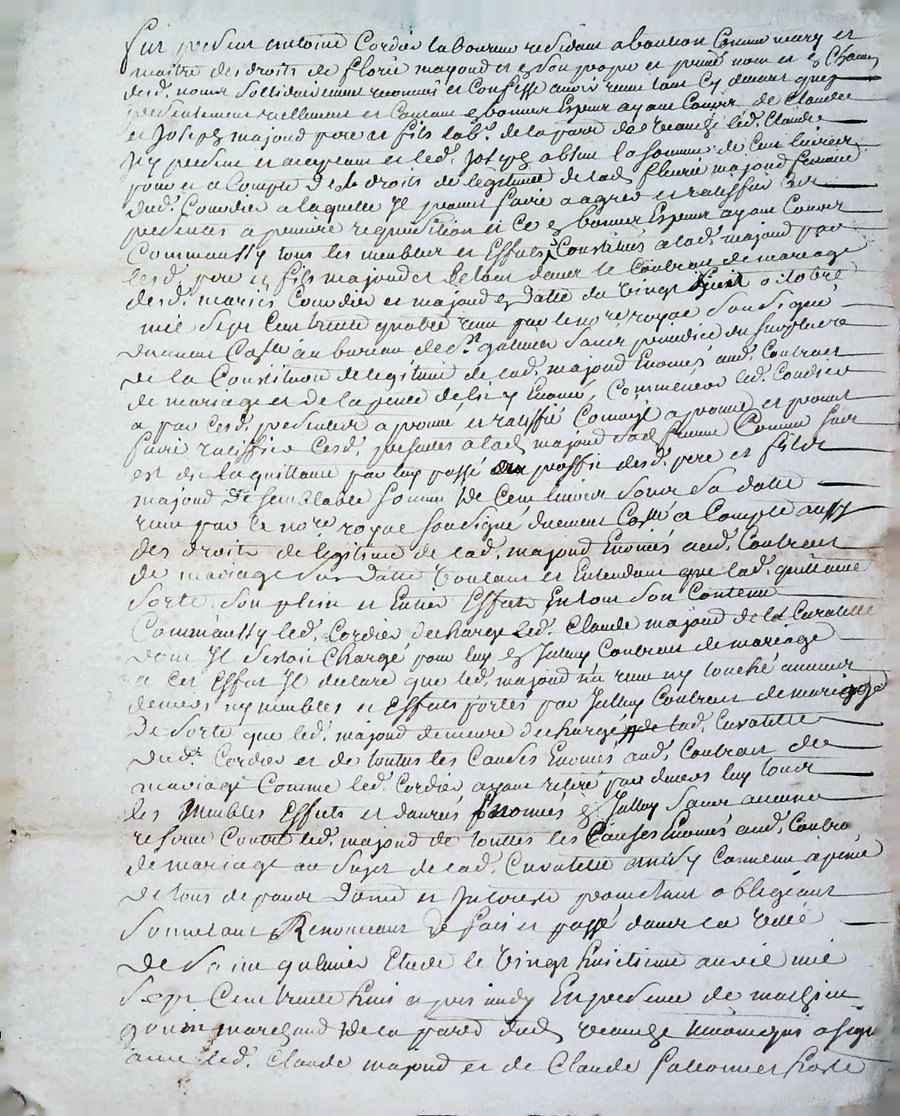 fut present antoine Cordier laboureur residant a bouteon Comme mary et
maitre des droits de florie majond et en son propre et privé nom et
led. nome sollidairement reconnu et Confesse avoir reçu tant cy devant que
presentement reellement et Comtant en bonnes Espesses ayant Cours de Claude
et Joseph majond pere et fils lab.rs de la parr de Veauche led. Claude
icy present et acceptant et led. Joseph absent la somme de Cent livres
pour et a Compte des droits de legitime de lad. fleurie majond femme
dud. Cordier a laquelle Il promet faire agreer et ratiffier Ces
presentes a premiere requisition et Ce en bonnes Especes ayant Cours
Comm'aussy tous les meubles et Effaits Constitués a lad. majond par
lesd. pere et fils majond et le tout dans le Contrat de mariage
desd. mariés Cordier et majond en datte du vingt huit octobre
mil Sept Cent trente quatre reçu par le no.re royal Soussigné
duement Con.lé au bureau de S.t galmier Sans prejudice du Surplus
de la Constitution de legitime de lad. majond Enoncés aud. Contract
de mariage et de la Enoncé, Comme led. Cordier
a par Cesd. presentes aprouvé et ratiffié Comm'il aprouve et promet
faire ratiffier Cesd. presentes a lad. majond Sad. femme Comme
est dit la quittance par luy passé au proffit desd. pere et fils
majond de semblable somme de Cent livres Sous Sa datte
reçu par le no.re royal soussigné duement Con.lé a Compte aussy
des droits de legitime de lad. majond Enoncés aud. Contract
de mariage Sus datté Voulant et Entendant que lad. quittance
Sorte Son plein et Entier Effait En tout Son Contenu
Comm'aussy led. Cordier decharge led. Claude majond de la Curatelle
dont Il s'etoit Chargé pour luy en Celluy Contract de mariage
a Cet Effait Il declare que led. majond n'a reçu ny touché aucuns
deniers ny meubles et Effaits portés par Celluy Contract de mariage
De Sorte que led. majond demeure dechargé de lad. Curatelle
dud. Cordier et de toutes les Causes Enoncés aud. Contract de
mariage Comme led. Cordier ayant retiré par devers luy tous
les Meubles Effaits et danrés Enoncés en Celluy Sans aucune
reserve Contre led. majond de touttes les Causes Enoncés aud. Contra
de mariage au Sujet de lad. Curatelle ainsy Convenu a peine
de tous depens Domm et Interest promettant obligeant
Soumetant Renonceant De fait et passé dans la Ville
De Saint galmier Etude le Vingt huictieme avril mil
Sept Cent trente huit apres midy En presence de mathieu
gonin marchand de la par.e dud. Veauche qui a signé
avec led. Claude majond et de Claude hoste